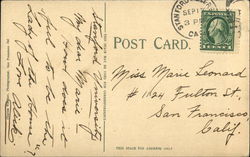 Stanford University
My dear Marie
How does it
feel to be the
Lady of the House?
Love
POST CARD.
STANFORD
SEP
3 P
CAL
Miss Marie Leonard
# 1124 Fulton St.
San Francisco
Calif
THIS SPACE FOR ADDRESS ONLY